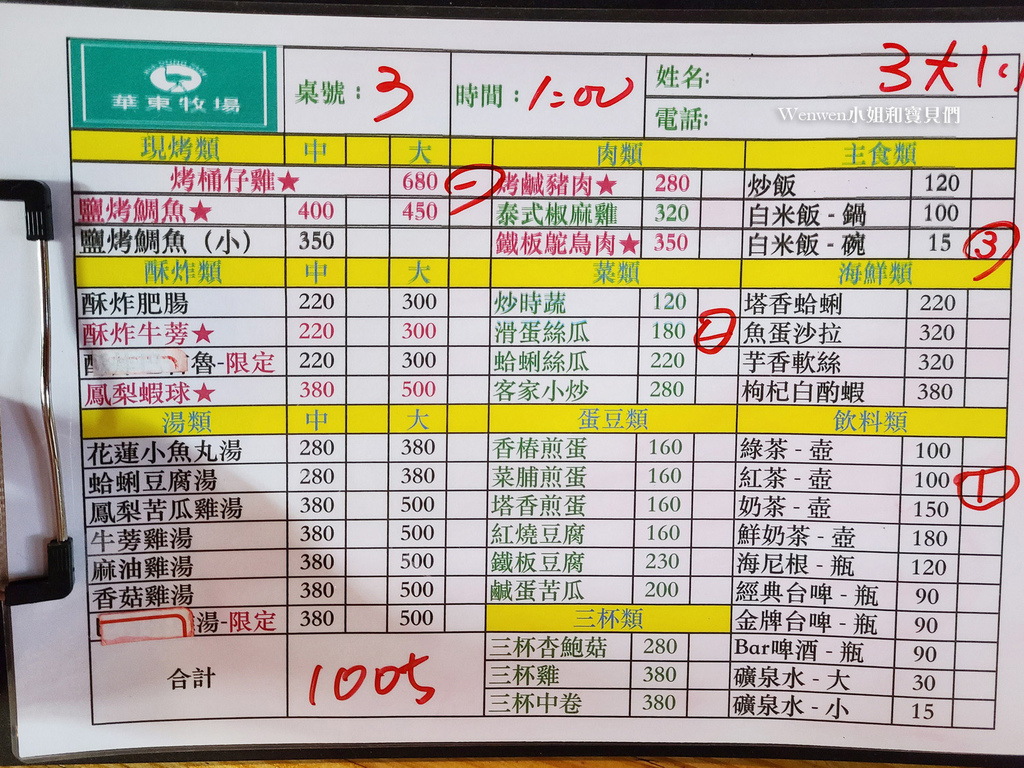 華東牧場 桌號： 3 時間： 1:00 姓名: 3大1小
電話:
Wenwen小姐和寶貝們
現烤類 中 大 肉類 主食類
烤桶仔雞★ 680 一 烤鹹豬肉★ 280 炒飯 120
鹽烤鯛魚★ 400 450 泰式椒麻雞 320 白米飯 - 鍋 100
鹽烤鯛魚（小） 350 鐵板鴕鳥肉★ 350 白米飯 - 碗 15 3
酥炸類 中 大 菜類 海鮮類
酥炸肥腸 220 300 炒時蔬 120 塔香蛤蜊 220
酥炸牛蒡★ 220 300 滑蛋絲瓜 180 魚蛋沙拉 320
魯-限定 220 300 蛤蜊絲瓜 220 芋香軟絲 320
鳳梨蝦球★ 380 500 客家小炒 280 枸杞白酌蝦 380
湯類 中 大 蛋豆類 飲料類
花蓮小魚丸湯 280 380 香椿煎蛋 160 綠茶 - 壺 100
蛤蜊豆腐湯 280 380 菜脯煎蛋 160 紅茶 - 壺 100 1
鳳梨苦瓜雞湯 380 500 塔香煎蛋 160 奶茶 - 壺 150
牛蒡雞湯 380 500 紅燒豆腐 160 鮮奶茶 - 壺 180
麻油雞湯 380 500 鐵板豆腐 230 海尼根 - 瓶 120
香菇雞湯 380 500 鹹蛋苦瓜 200 經典台啤 - 瓶 90
湯-限定 380 500 三杯類 金牌台啤 - 瓶 90
合計 1005 三杯杏鮑菇 280 Bar啤酒 - 瓶 90
三杯雞 380 礦泉水 - 大 30
三杯中卷 380 礦泉水 - 小 15